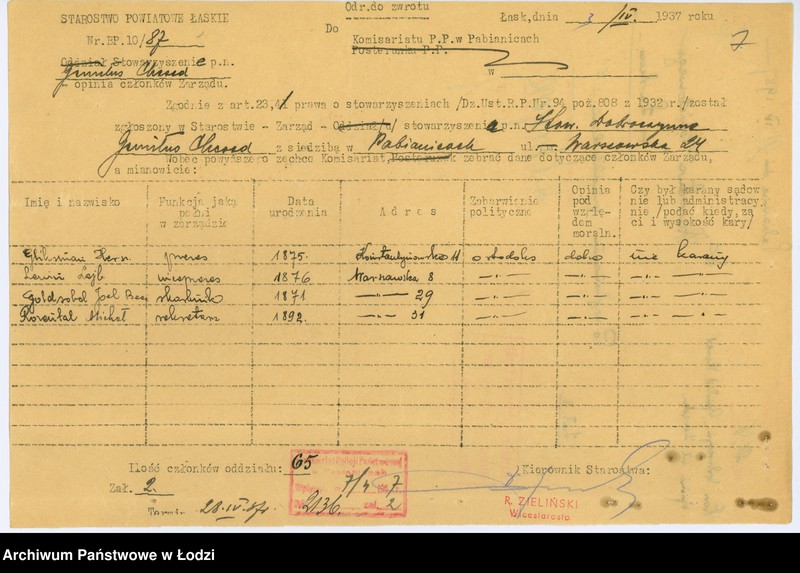 Odr. do zwrotu
STAROSTWO POWIATOWE ŁASKIE
Łask, dnia 3/IV. 1937 roku
Nr. BP. 10/87
7
Do
Komisariatu P.P. w Pabianicach
Posterunku P.P.
w
Oddział Stowarzyszenie p.n.
Gemilus Chesed
- opinia członków Zarządu.
Zgodnie z art. 23, 41 prawa o stowarzyszeniach /Dz.Ust.R.P. Nr. 94 poz. 808 z 1932 r./ został
zgłoszony w Starostwie - Zarząd - Oddział/u/ stowarzyszenia p.n. Stow. Dobroczynne
Gemilus Chesed z siedzibą w Pabianicach ul. Warszawska 24
Wobec powyższego zechce Komisariat, Posterunek zebrać dane dotyczące członków Zarządu,
a mianowicie:
Imię i nazwisko | Funkcja jaką pełni w zarządzie | Data urodzenia | Adres | Zabarwienie polityczne | Opinia pod względem moraln. | Czy był karany sądownie lub administracyjnie /podać kiedy, za co i wysokość kary/
Gliksman Hersz | prezes | 1875. | Konstantynowska 11 | ortodoks | dobra | nie karany
Lewin Lajb | wiceprezes | 1876 | Warszawska 8 | —"— | —"— | —"—
Goldsobel Joel | skarbnik | 1871 | —"— 29 | —"— | —"— | —"—
Rozental Michał | sekretarz | 1892. | —"— 31 | —"— | —"— | —"—
Ilość członków oddziału: 65
Zał. 2.
Termin 28.IV.37r.
Komisariat Policji Państwowej
7/4 1937
2136. zał. 2
/Kierownik Starostwa:
R. ZIELIŃSKI
Wicestarosta
Archiwum Państwowe w Łodzi